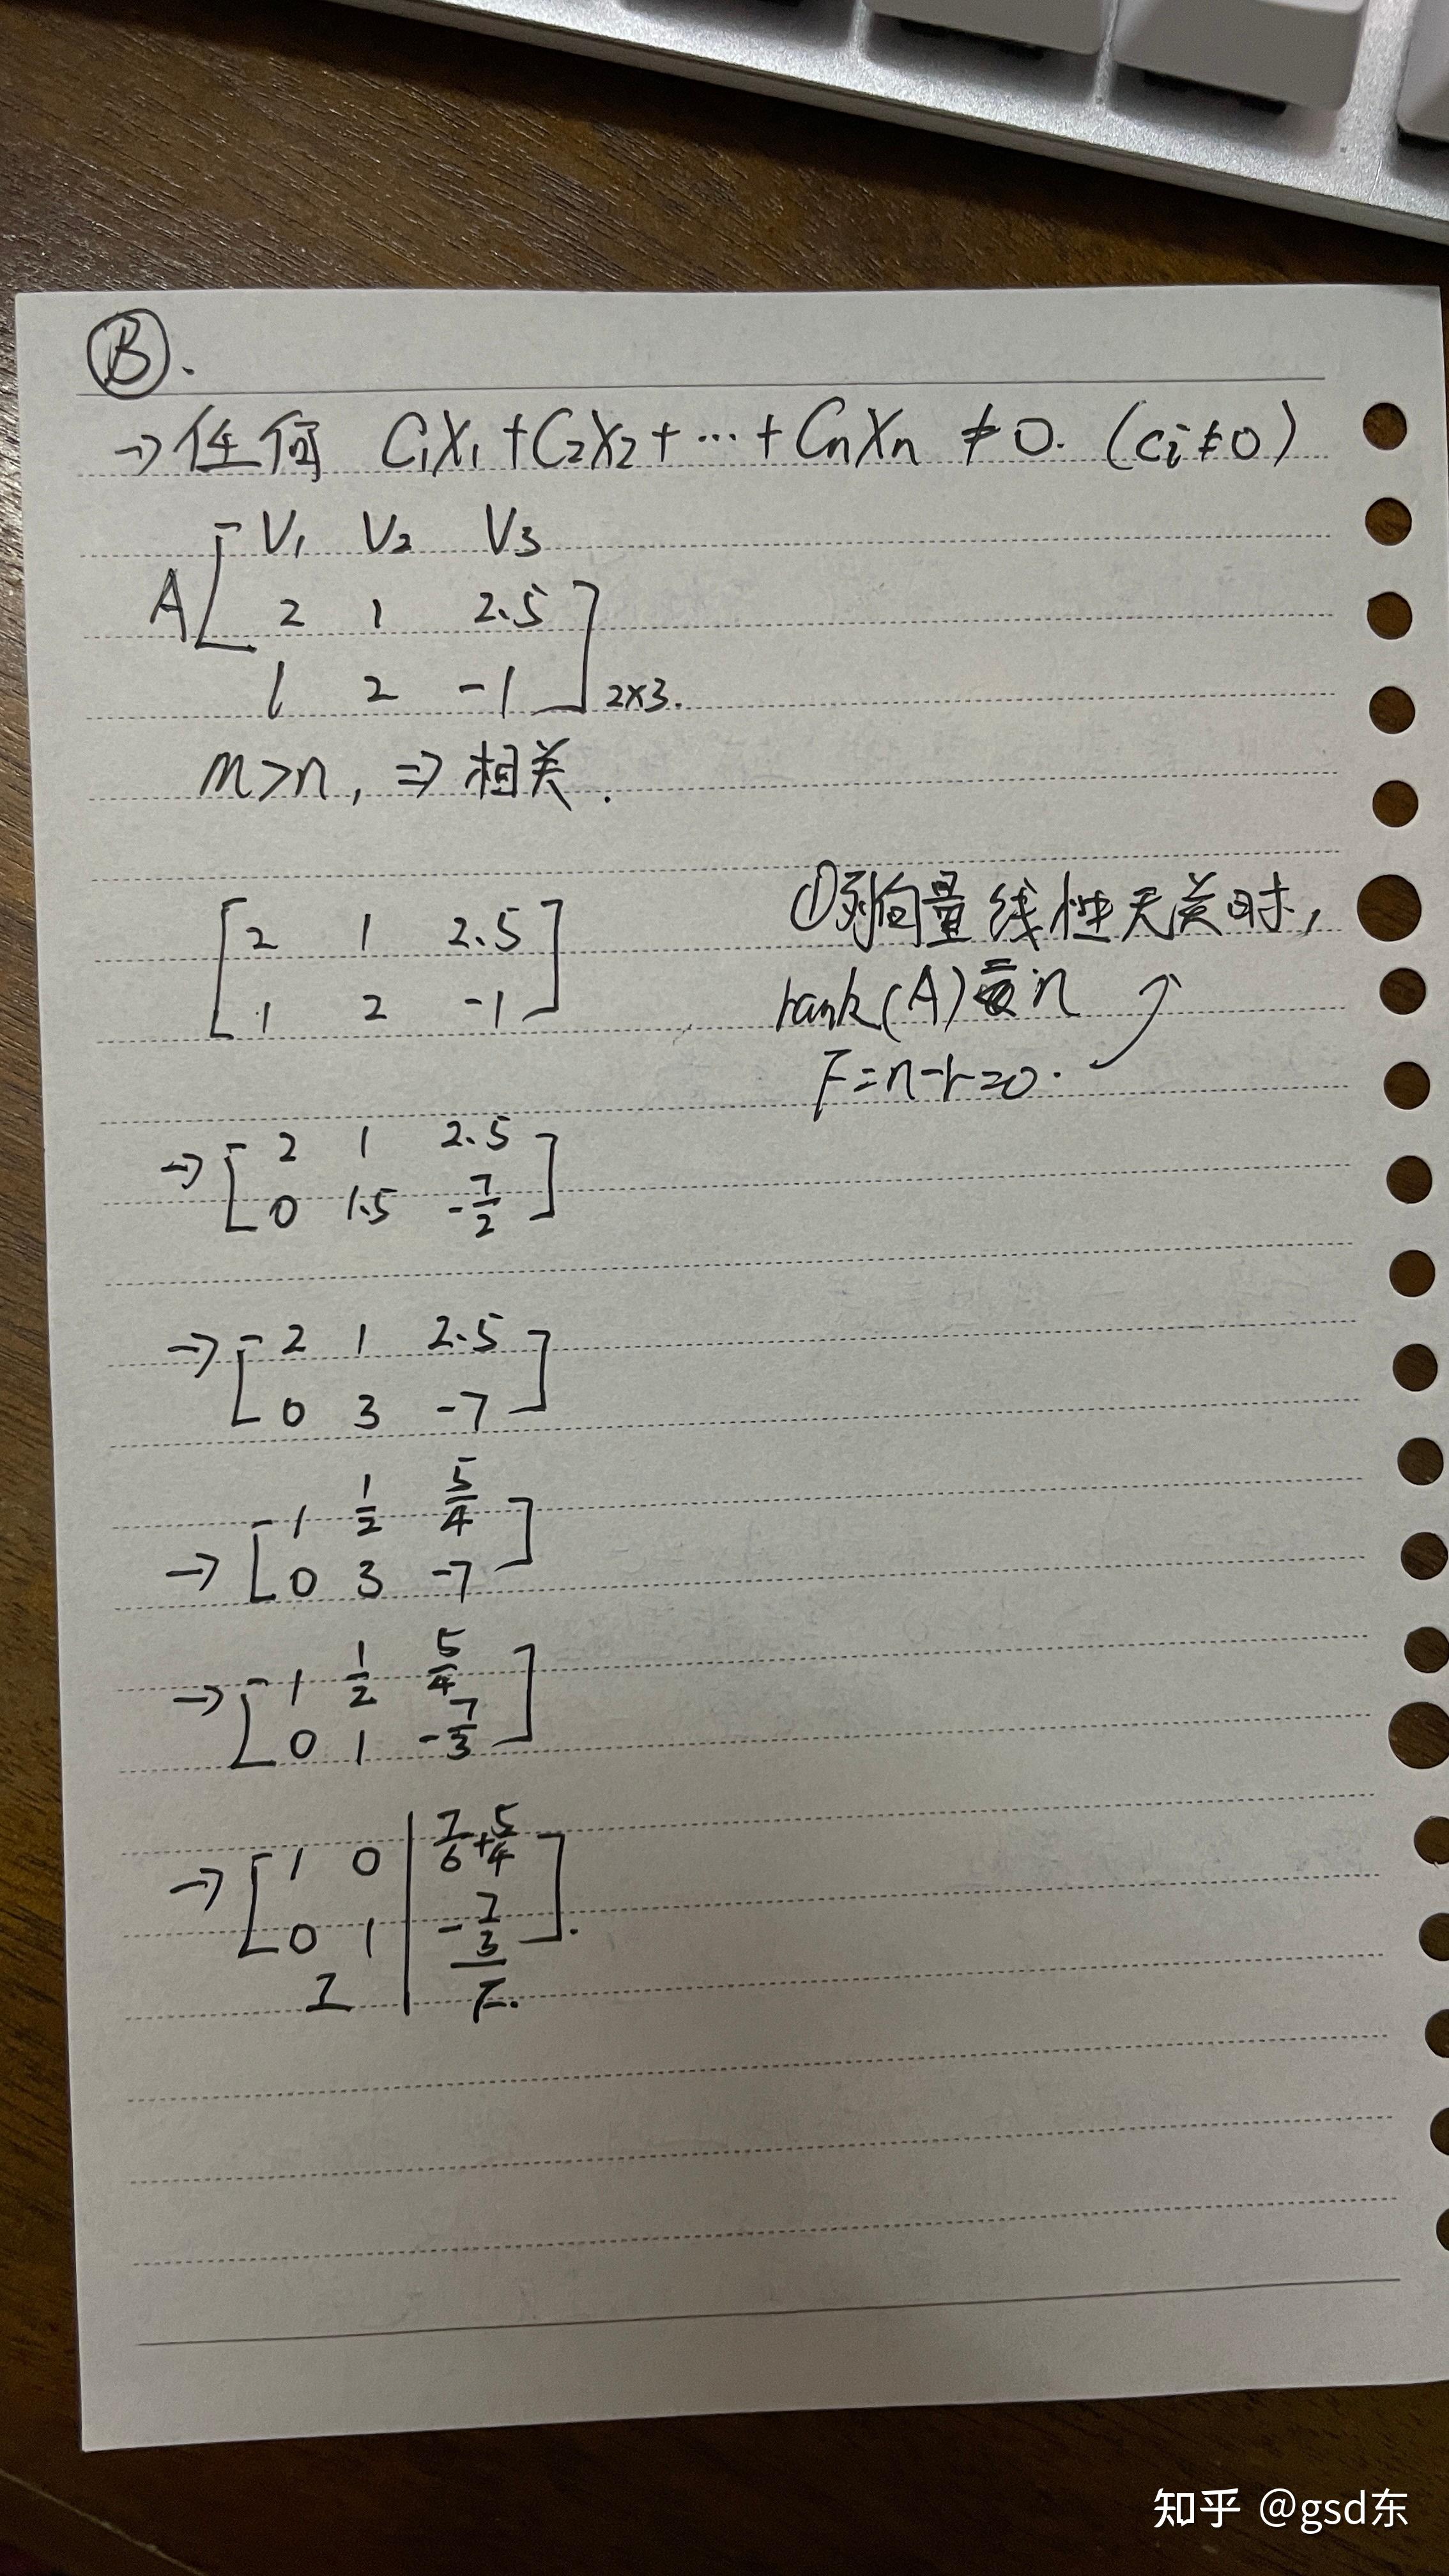 B.
→ 任何 C₁X₁+C₂X₂+⋯+CnXn ≠0. (ci≠0)
V₁ V₂ V₃
A [ 2 1 2.5
1 2 -1 ] 2×3.
m>n, ⇒ 相关.
[ 2 1 2.5
1 2 -1 ]
① 列向量线性无关时,
rank(A)=n
F=n-r=0.
→ [ 2 1 2.5
0 1.5 -7/2 ]
→ [ 2 1 2.5
0 3 -7 ]
→ [ 1 1/2 5/4
0 3 -7 ]
→ [ 1 1/2 5/4
0 1 -7/3 ]
→ [ 1 0 | 7/6+5/4
0 1 | -7/3 ].
I F.
知乎 @gsd东